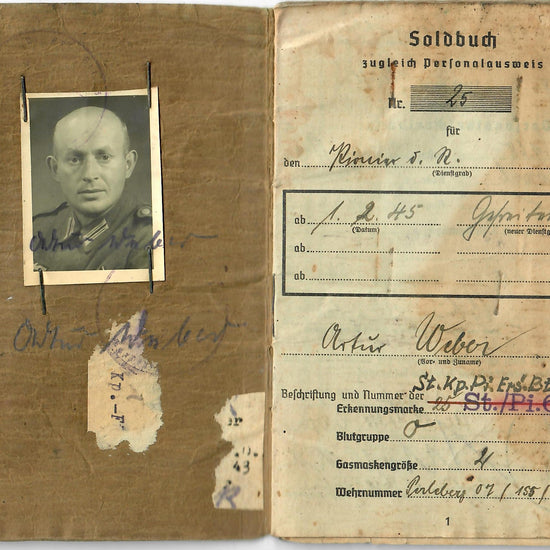 Artur Weber
Artur Weber
Kp.-F
43
R
Soldbuch
zugleich Personalausweis
Nr. 25
für
den Pionier d. R.
(Dienstgrad)
ab 1.2.45 Gefreiter
(Datum) (neuer Dienstg
ab
ab
Artur Weber
(Vor- und Zuname)
St.Kp.Pi.Ers.Bt
Beschriftung und Nummer der
Erkennungsmarke 25 St./Pi.
Blutgruppe O
Gasmaskengröße 2
Wehrnummer Perleberg 07/155/
1